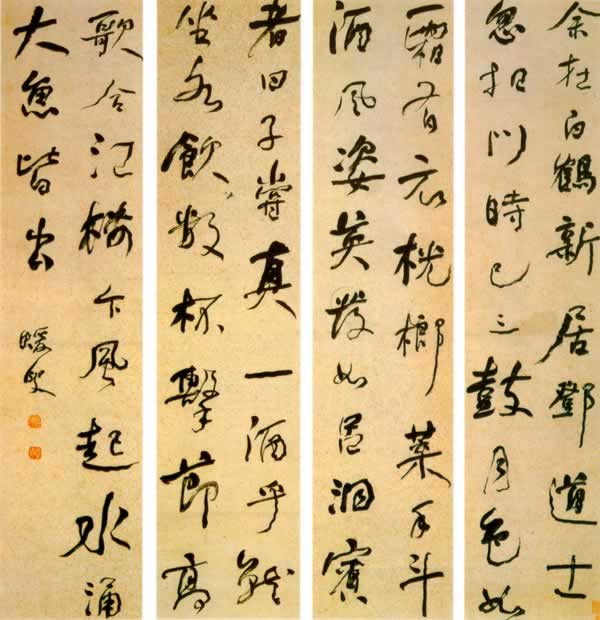 余在白鶴新居鄧道士
忽扣門時已三鼓月色如
霜有衣桄榔葉手斗
酒風姿英發如呂洞賓
者曰子嘗真一酒乎就
坐各飲數杯擊節高
歌合江樓下風起水涌
大魚皆出
蝯叟